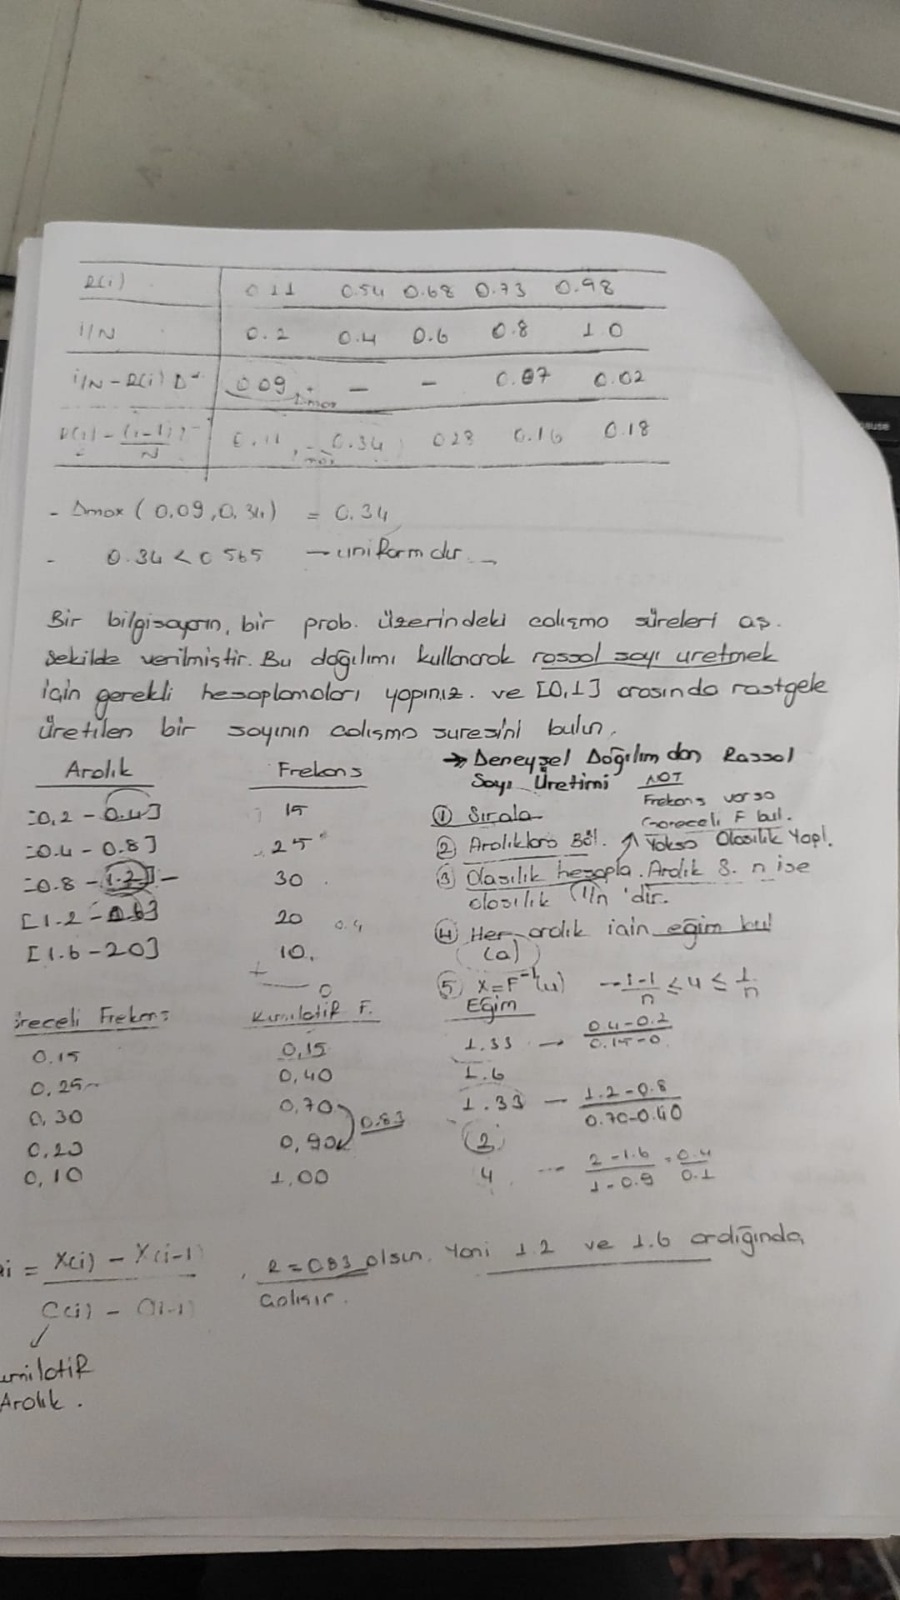 R(i) 0.11 0.54 0.68 0.73 0.98
i/N 0.2 0.4 0.6 0.8 1.0
i/N - R(i) D+ 0.09 - - 0.07 0.02
Dmax
R(i) - (i-1)/N 0.11 0.34 0.28 0.16 0.18
max
- Dmax (0.09, 0.34) = 0.34
- 0.34 < 0.565 - uniformdır.
Bir bilgisayarın, bir prob. üzerindeki çalışma süreleri aş.
şekilde verilmiştir. Bu dağılımı kullanarak rassal sayı üretmek
için gerekli hesaplamaları yapınız. ve [0,1] arasında rastgele
üretilen bir sayının çalışma süresini bulun.
Aralık Frekans
0,2 - 0.4] 15
0.4 - 0.8] 25
0.8 - 1.2] 30
[1.2 - 20 0.4
[1.6 - 2.0] 10
0
→ Deneysel Dağılımdan Rassal
Sayı Üretimi
NOT
Frekans varsa
Göreceli F bul.
Yoksa Olasılık Yap.
① Sırala
② Aralıklara Böl.
③ Olasılık hesapla. Aralık S. n ise
olasılık 1/n 'dir.
④ Her aralık için eğim bul
(a)
⑤ X = F⁻¹(u) → i-1/n ≤ u ≤ i/n
öreceli Frekans Kümülatif F. Eğim
0.15 0,15 1.33 → 0.4-0.2/0.15-0
0,25 0,40 1.6
0,30 0,70 1.33 - 1.2-0.8/0.70-0.40
0.83
0.20 0,90 (2)
0,10 1,00 4 → 2-1.6/1-0.9 = 0.4/0.1
i = X(i) - X(i-1) / C(i) - C(i-1)
, R = 0.83 olsun. Yani 1.2 ve 1.6 aralığında
çalışır.
ümilatif
Aralık.